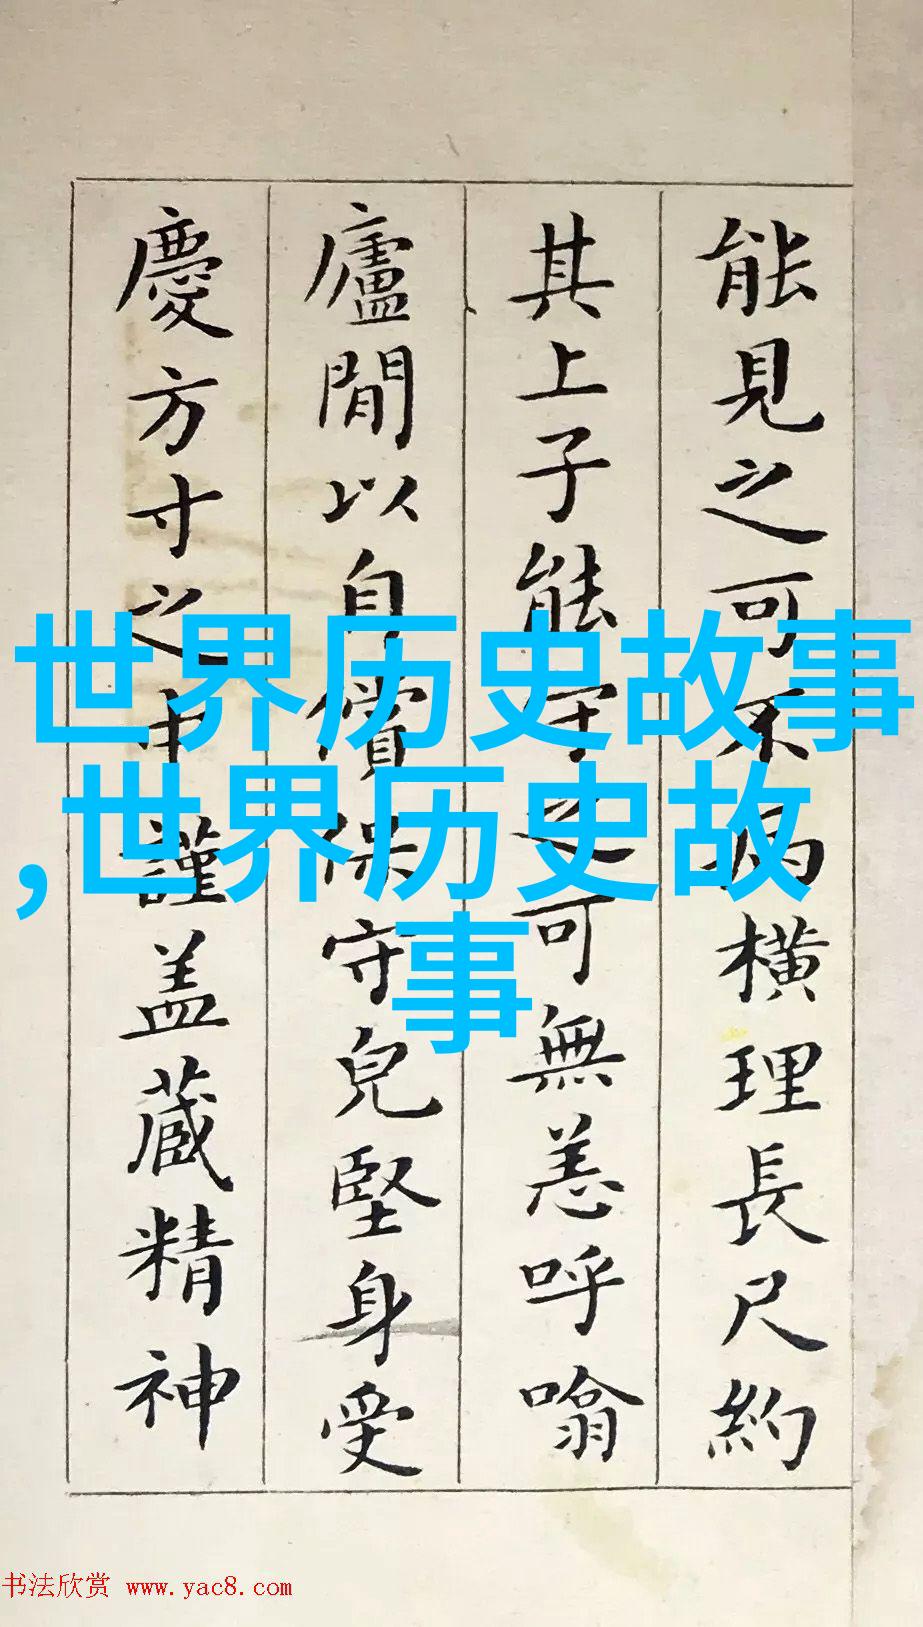 能見之可不病橫理長尺約
其上子能守之可無恙呼噏
廬閒以自償保守皃堅身受
慶方寸之中謹盖藏精神
世界历史故事
,世界历史故
事
书法欣赏 www.yac8.com